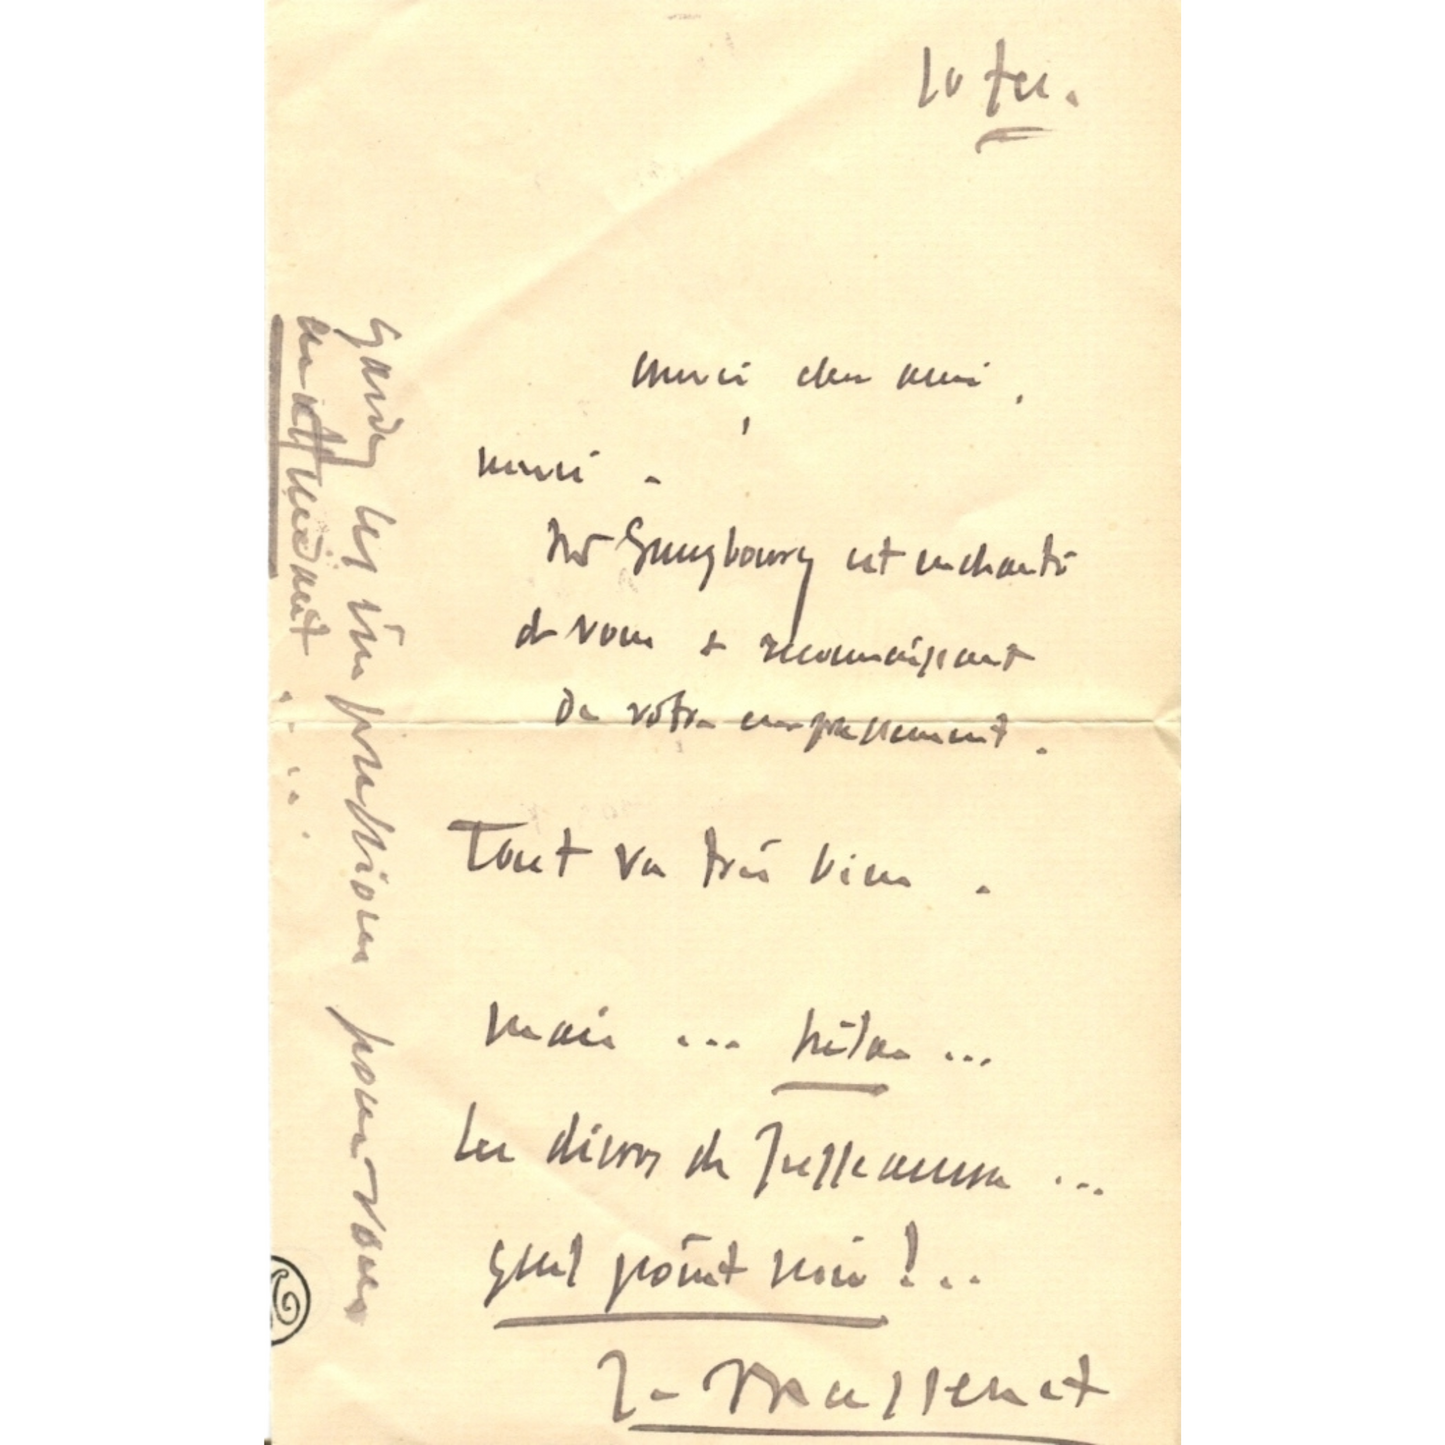 10 fev.
merci cher ami,
merci.
Mr Gunsbourg est enchanté
de vous & reconnaissant
de votre empressement.
Tout va très bien.
mais ... hélas ...
Les décors de Jusseaume ...
quel point noir !..
J. Massenet
Gardez les impressions pour vous
en attendant . . . . .